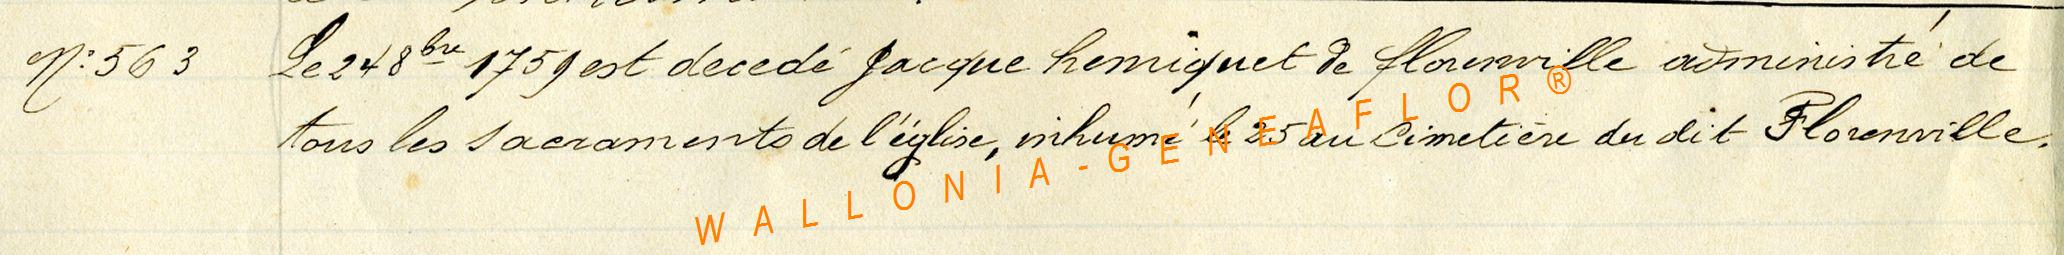 N° 563 Le 24 8bre 1759 est decedé Jacque hemiquet de florenville administré de
tous les sacraments de l'église, inhumé le 25 au Cimetière du dit Florenville.
WALLONIA-GENEAFLOR®